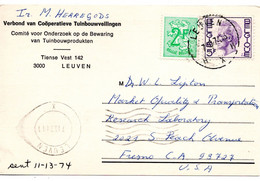 Ir M. Herregods
Verbond van Coöperatieve Tuinbouwveilingen
Comité voor Onderzoek op de Bewaring
van Tuinbouwprodukten
Tiense Vest 142
3000 LEUVEN
LEUVEN
Dr. W. L. Lipton
Market Quality & Transportation
Research Laboratory
2021 S. Peach Avenue
Fresno CA. 93727
U.S.A
sent 11-13-74